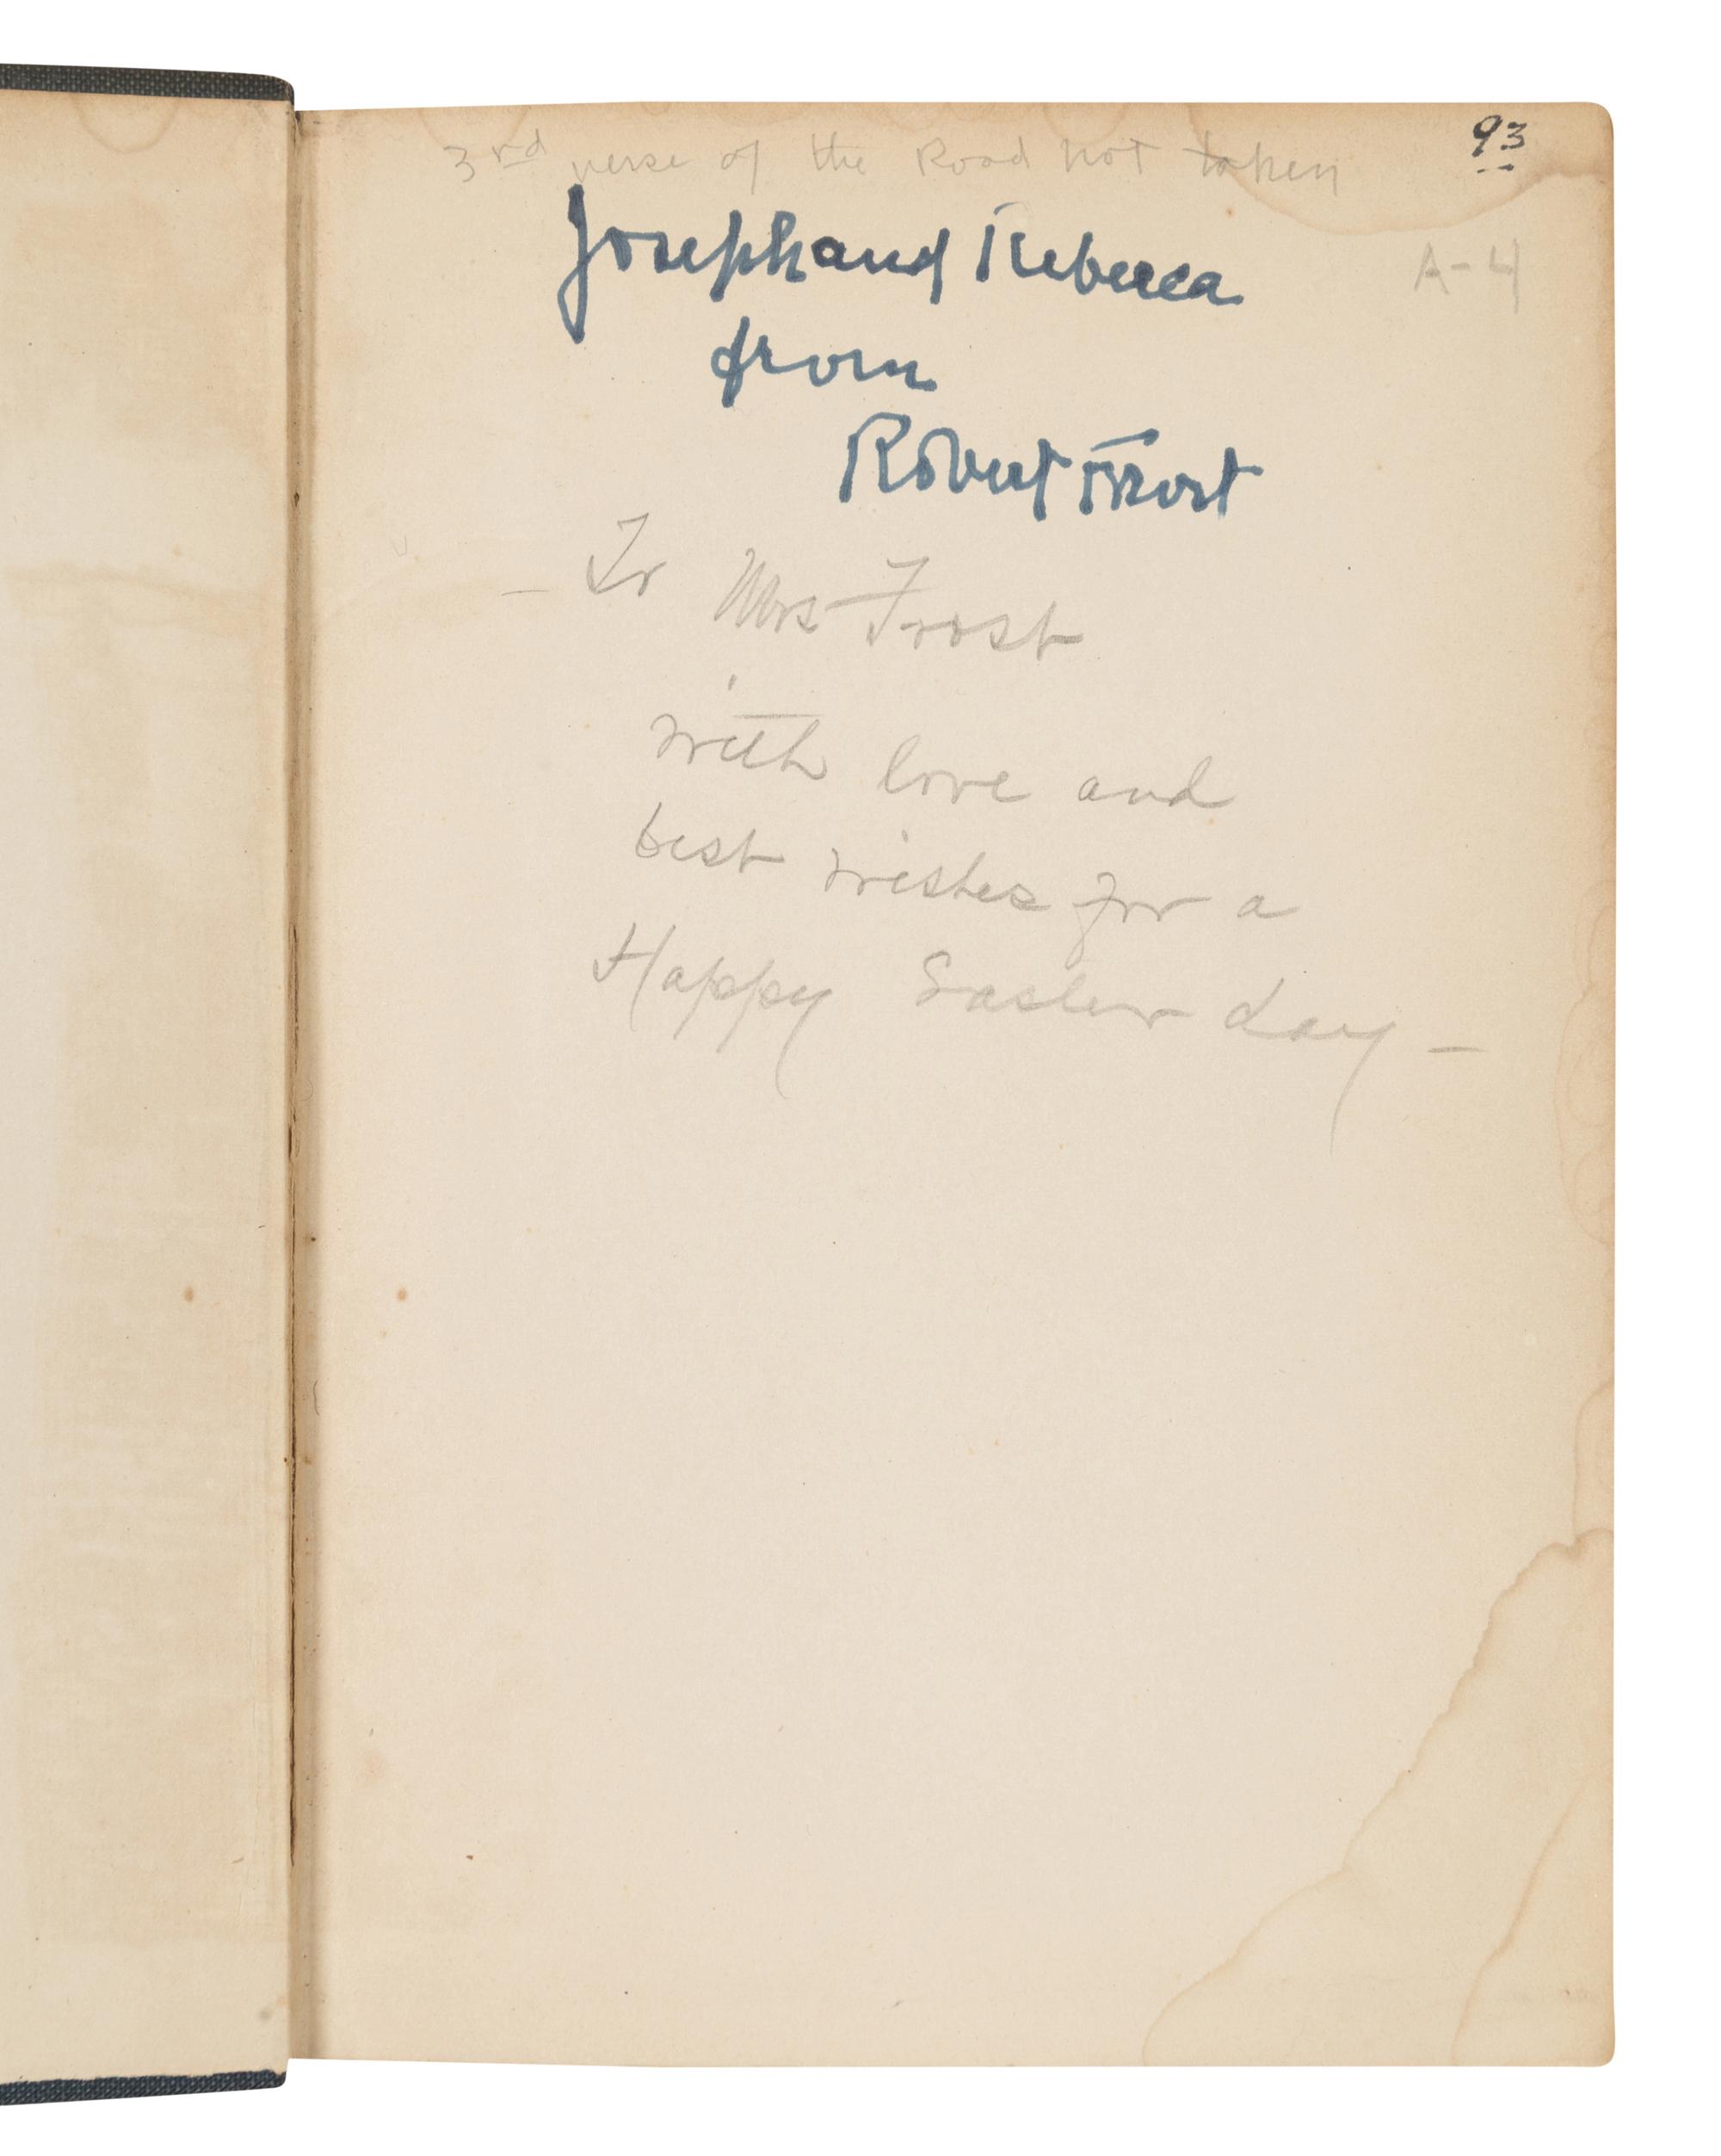 93
3rd verse of the Road not taken
A-4
Joseph and Rebecca
from
Robert Frost
- To Mrs Frost
with love and
best wishes for a
Happy Easter day -